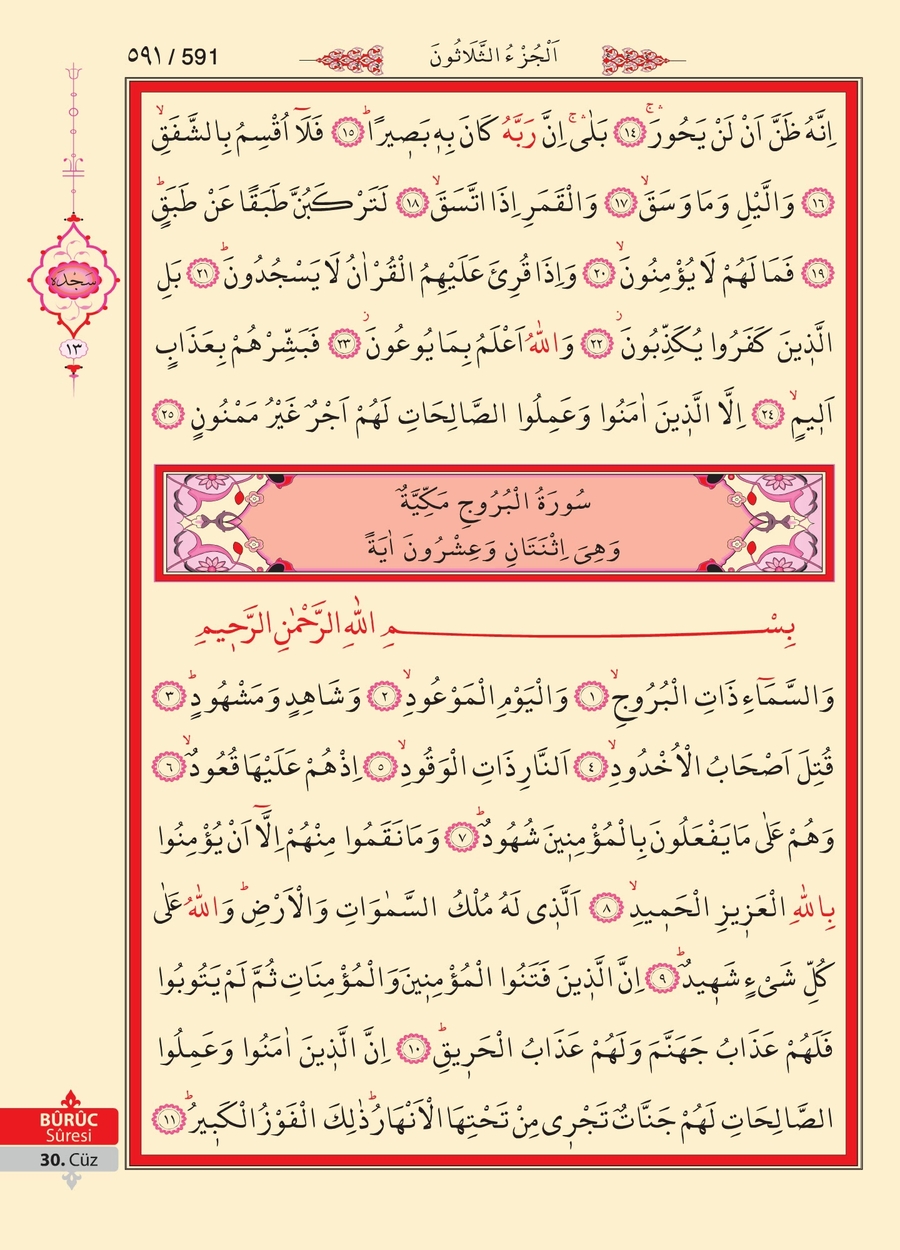 ٥٩١ / 591
اَلْجُزْءُ الثَّلَاثُونَ
اِنَّهُ ظَنَّ اَنْ لَنْ يَحُورَۚۛ ﴿١٤﴾ بَلٰىۚۛ اِنَّ رَبَّهُ كَانَ بِه۪ بَص۪يرًاۜ ﴿١٥﴾ فَلَٓا اُقْسِمُ بِالشَّفَقِۙ
﴿١٦﴾ وَالَّيْلِ وَمَا وَسَقَۙ ﴿١٧﴾ وَالْقَمَرِ اِذَا اتَّسَقَۙ ﴿١٨﴾ لَتَرْكَبُنَّ طَبَقًا عَنْ طَبَقٍۜ
﴿١٩﴾ فَمَا لَهُمْ لَا يُؤْمِنُونَۙ ﴿٢٠﴾ وَاِذَا قُرِئَ عَلَيْهِمُ الْقُرْاٰنُ لَا يَسْجُدُونَۜ ﴿٢١﴾ بَلِ
الَّذ۪ينَ كَفَرُوا يُكَذِّبُونَۘ ﴿٢٢﴾ وَاللّٰهُ اَعْلَمُ بِمَا يُوعُونَۘ ﴿٢٣﴾ فَبَشِّرْهُمْ بِعَذَابٍ
اَل۪يمٍۙ ﴿٢٤﴾ اِلَّا الَّذ۪ينَ اٰمَنُوا وَعَمِلُوا الصَّالِحَاتِ لَهُمْ اَجْرٌ غَيْرُ مَمْنُونٍ ﴿٢٥﴾
سَجْدَه
١٣
سُورَةُ الْبُرُوجِ مَكِّيَّةٌ
وَهِىَ اِثْنَتَانِ وَعِشْرُونَ اٰيَةً
بِسْمِ اللّٰهِ الرَّحْمٰنِ الرَّح۪يمِ
وَالسَّمَٓاءِ ذَاتِ الْبُرُوجِۙ ﴿١﴾ وَالْيَوْمِ الْمَوْعُودِۙ ﴿٢﴾ وَشَاهِدٍ وَمَشْهُودٍۜ ﴿٣﴾
قُتِلَ اَصْحَابُ الْاُخْدُودِۙ ﴿٤﴾ اَلنَّارِ ذَاتِ الْوَقُودِۙ ﴿٥﴾ اِذْ هُمْ عَلَيْهَا قُعُودٌۙ ﴿٦﴾
وَهُمْ عَلٰى مَا يَفْعَلُونَ بِالْمُؤْمِن۪ينَ شُهُودٌۜ ﴿٧﴾ وَمَا نَقَمُوا مِنْهُمْ اِلَّٓا اَنْ يُؤْمِنُوا
بِاللّٰهِ الْعَز۪يزِ الْحَم۪يدِۙ ﴿٨﴾ اَلَّذ۪ى لَهُ مُلْكُ السَّمٰوَاتِ وَالْاَرْضِۜ وَاللّٰهُ عَلٰى
كُلِّ شَىْءٍ شَه۪يدٌۜ ﴿٩﴾ اِنَّ الَّذ۪ينَ فَتَنُوا الْمُؤْمِن۪ينَ وَالْمُؤْمِنَاتِ ثُمَّ لَمْ يَتُوبُوا
فَلَهُمْ عَذَابُ جَهَنَّمَ وَلَهُمْ عَذَابُ الْحَر۪يقِۜ ﴿١٠﴾ اِنَّ الَّذ۪ينَ اٰمَنُوا وَعَمِلُوا
الصَّالِحَاتِ لَهُمْ جَنَّاتٌ تَجْر۪ى مِنْ تَحْتِهَا الْاَنْهَارُۜ ذٰلِكَ الْفَوْزُ الْكَب۪يرُۜ ﴿١١﴾
BÛRÛC
Sûresi
30. Cüz